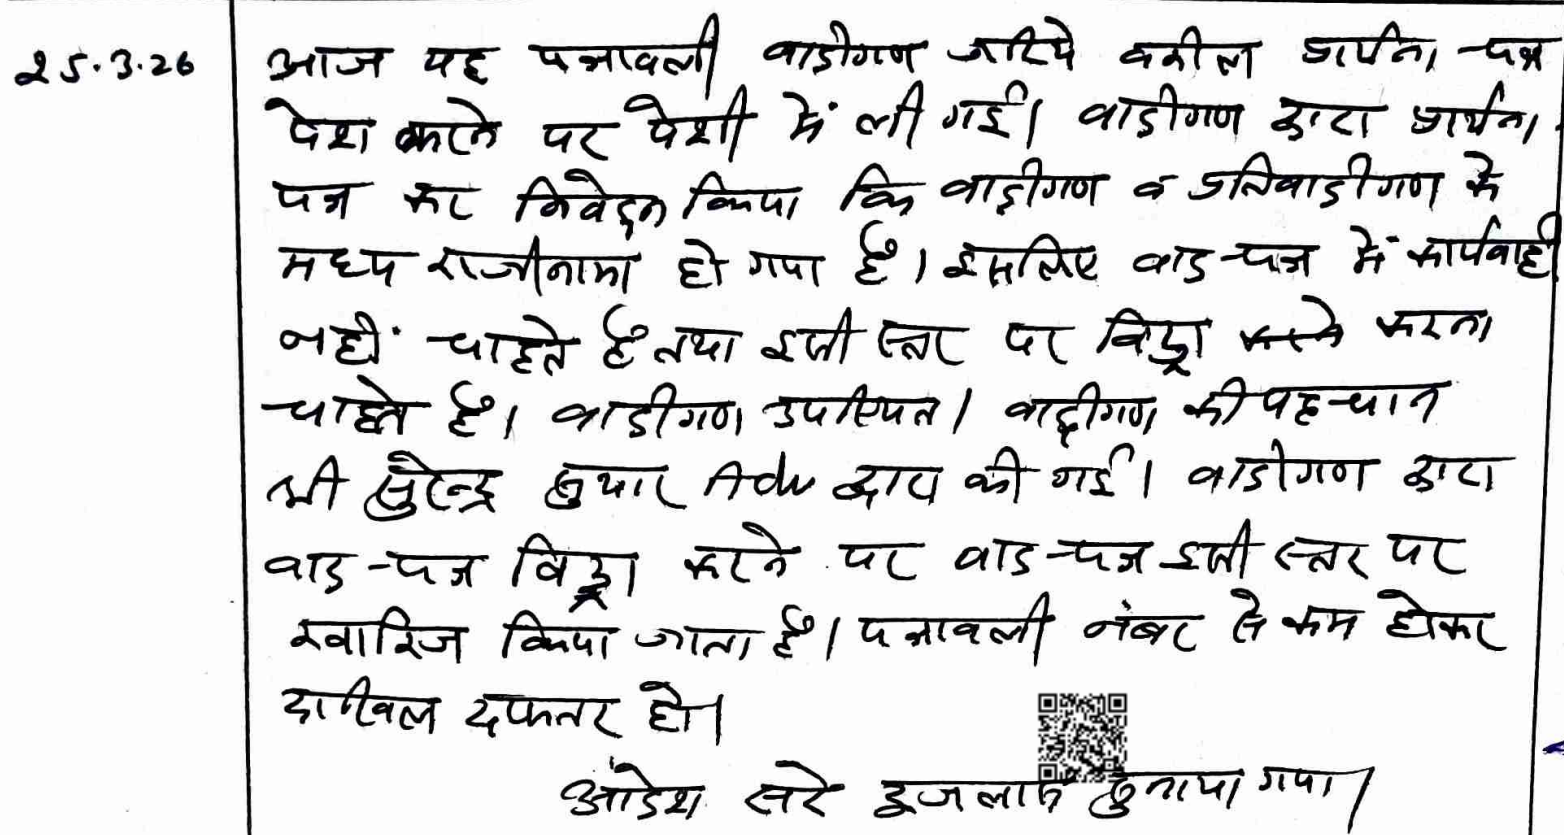 25.3.26 आज यह पत्रावली वादीगण जरिये वकील प्रार्थना पत्र
पेश करने पर पेशी में ली गई। वादीगण द्वारा प्रार्थना
पत्र कर निवेदन किया कि वादीगण व प्रतिवादीगण के
मध्य राजीनामा हो गया है। इसलिए वाद पत्र में कार्यवाही
नहीं चाहते है तथा इसी स्तर पर विड्रा करना
चाहते है। वादीगण उपस्थित। वादीगण की पहचान
श्री सुरेन्द्र सुथार Adv द्वारा की गई। वादीगण द्वारा
वाद-पत्र विड्रा करने पर वाद-पत्र इसी स्तर पर
खारिज किया जाता है। पत्रावली नंबर से कम होकर
दाखिल दफ्तर हो।
आदेश सरे इजलास सुनाया गया।